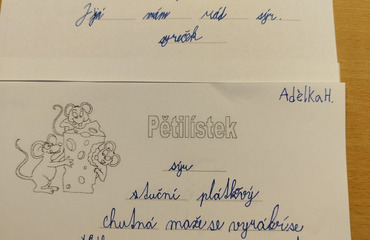 Já mám rád sýr.
syreček
Adélka H.
Pětilístek
sýr
sluční plátkový
chutná maže se vyrábí se